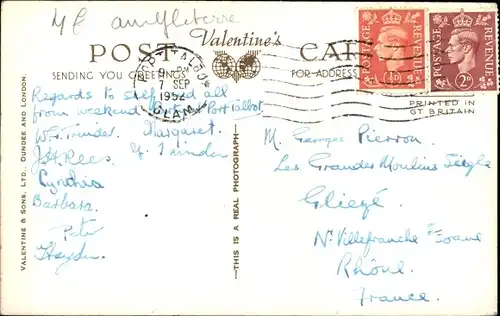 angleterre
POST CARD
Valentine's
SENDING YOU GREETINGS
FOR ADDRESS
PORT TALBOT
7 SEP
1952
GLAM
POSTAGE REVENUE
½D
POSTAGE REVENUE
2D
PRINTED IN
GT BRITAIN
Regards to self and all
from weekend Port Talbot
Margaret
J H Rees
Cynthia
Barbara
Peter
M. Georges Pierron
Les Grandes Moulins
Gliegé
Nr Villefranche
Rhône
France.
VALENTINE & SONS, LTD. DUNDEE AND LONDON.
—THIS IS A REAL PHOTOGRAPH—